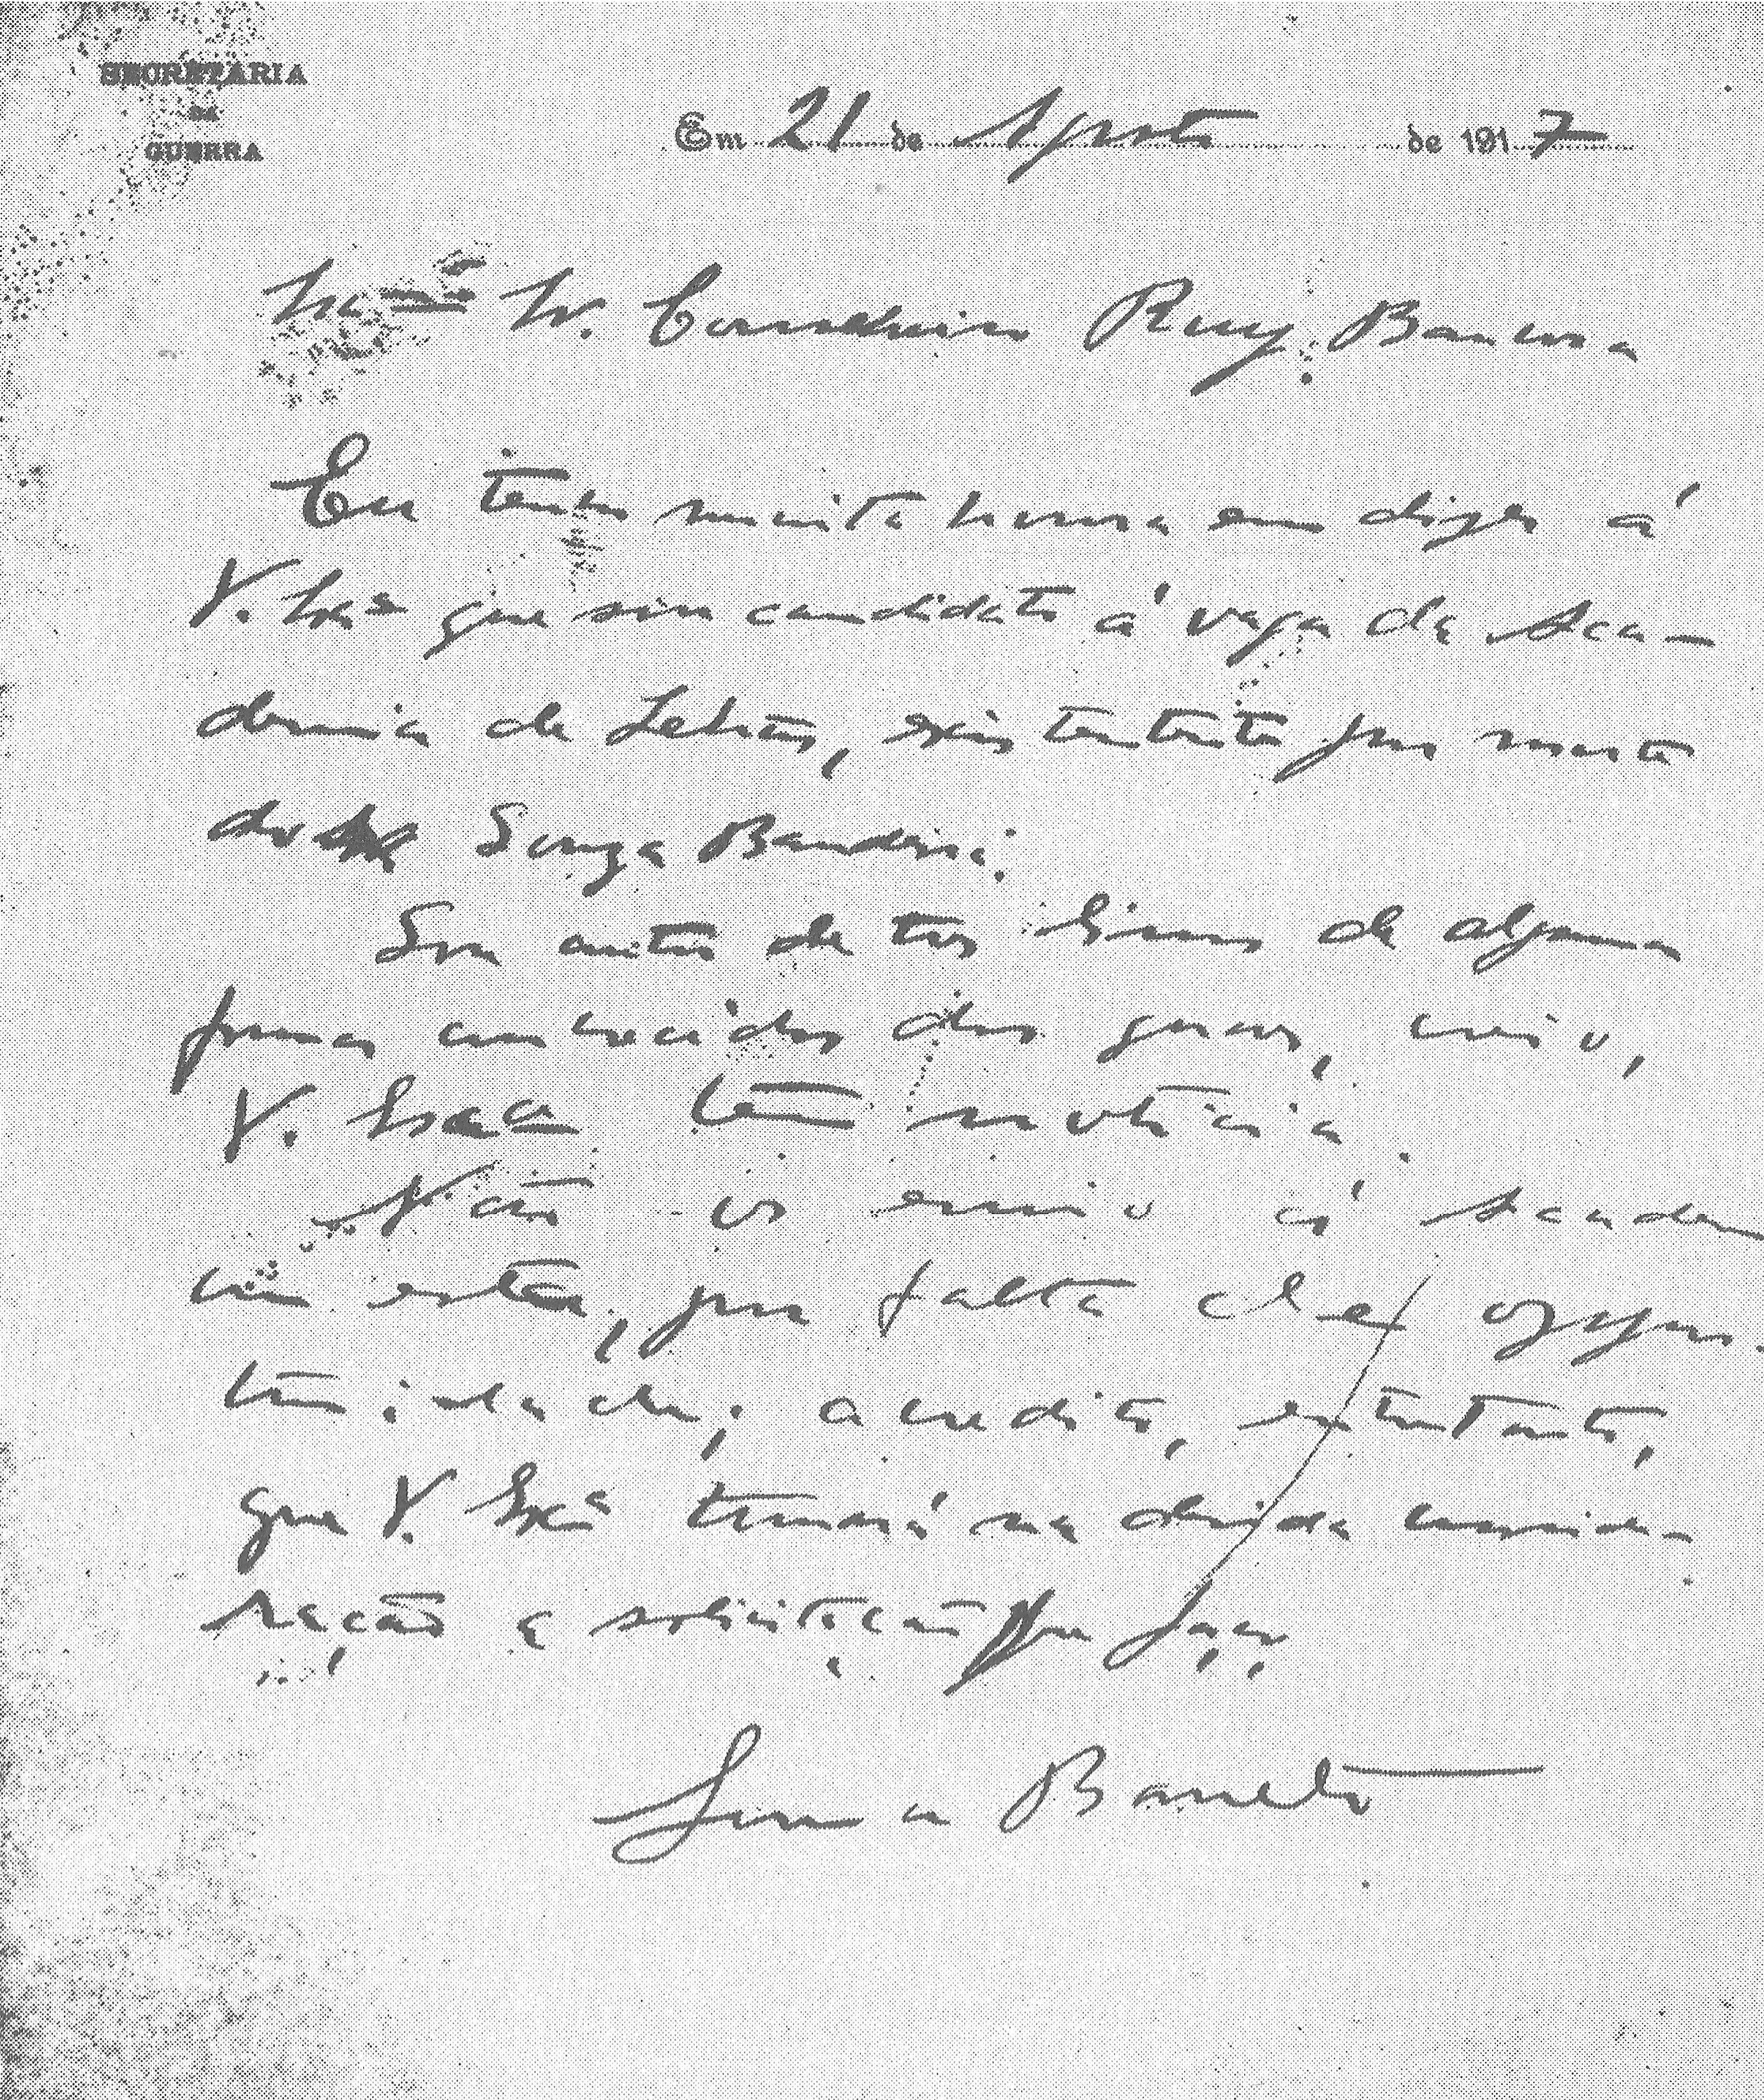 SECRETARIA
DA
GUERRA
Em 21 de Agosto de 1917
Exmo Sr. Conselheiro Ruy Barbosa
Eu tenho muita honra em dizer á
V. Exa que sou candidato á vaga da Aca-
demia de Letras, existente por morte
do Souza Bandeira.
Sou autor de tres livros de alguma
forma conhecidos dos quaes, creio,
V. Exca tem noticia.
Não os envio á Academ
ia esta, por falta de oppor-
tunidade; acredito, entretanto,
que V. Exa tomará na devida conside-
ração a solicitação que faço.
Lima Barreto